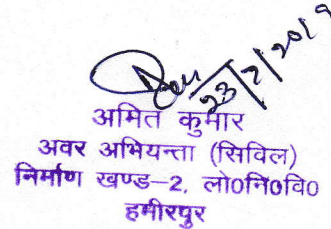 23/2/2019
अमित कुमार
अवर अभियन्ता (सिविल)
निर्माण खण्ड-2, लो0नि0वि0
हमीरपुर